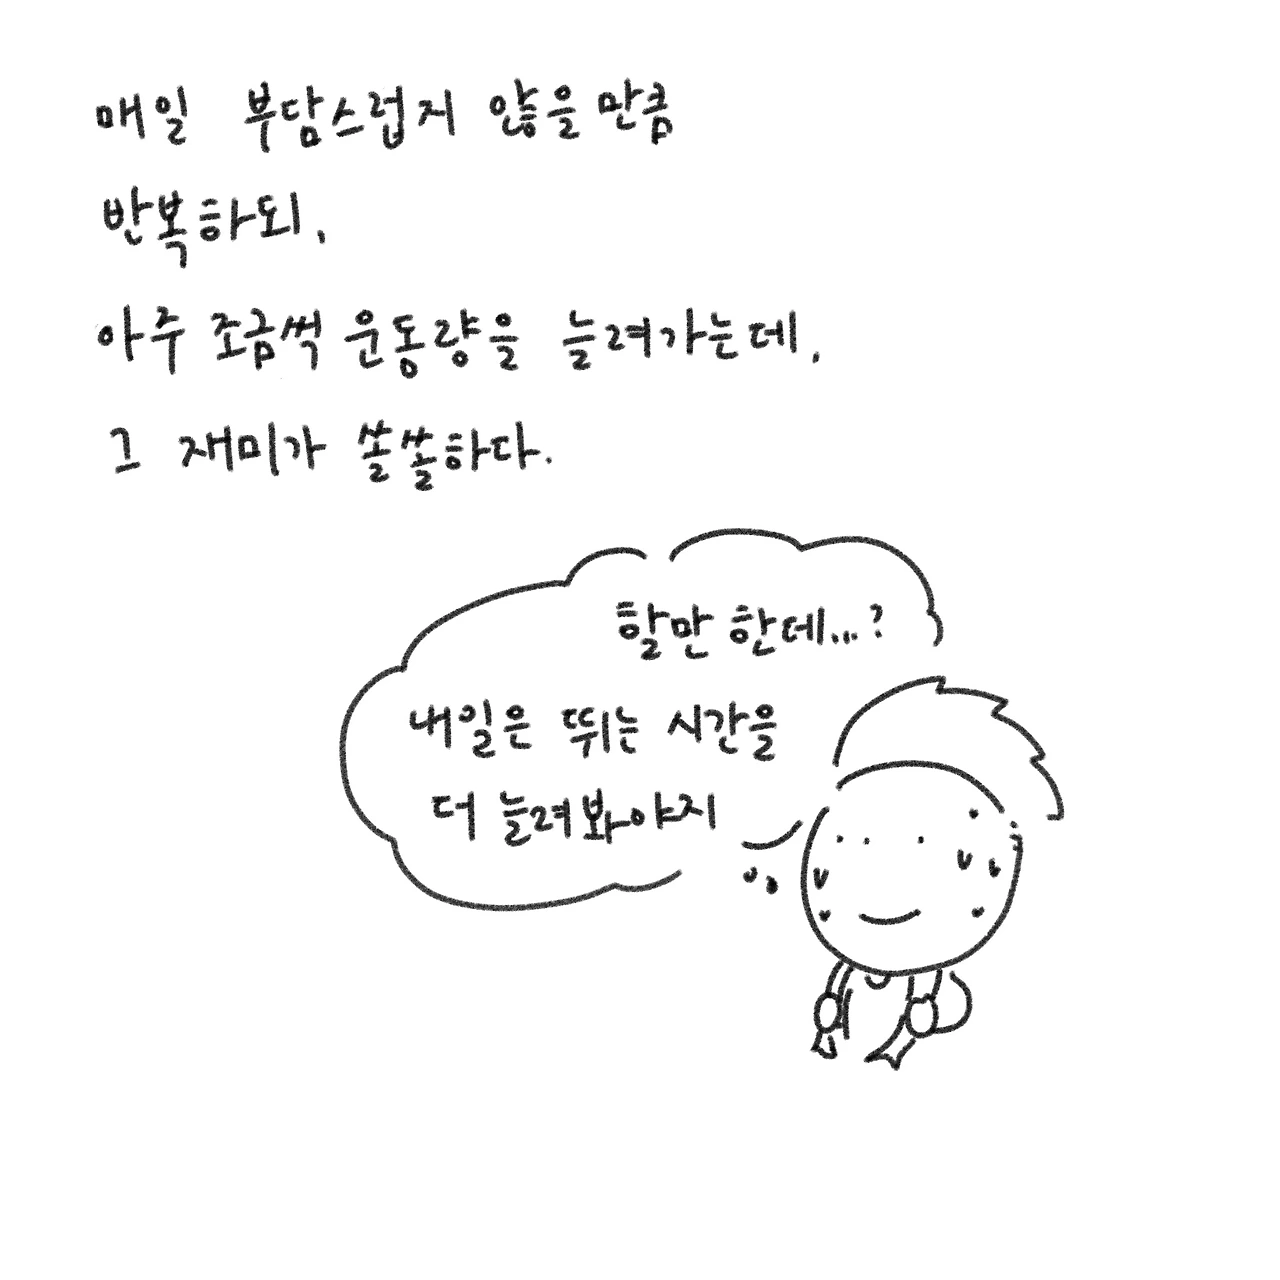 매일 부담스럽지 않을 만큼
반복하되,
아주 조금씩 운동량을 늘려가는데,
그 재미가 쏠쏠하다.
할만 한데...?
내일은 뛰는 시간을
더 늘려봐야지